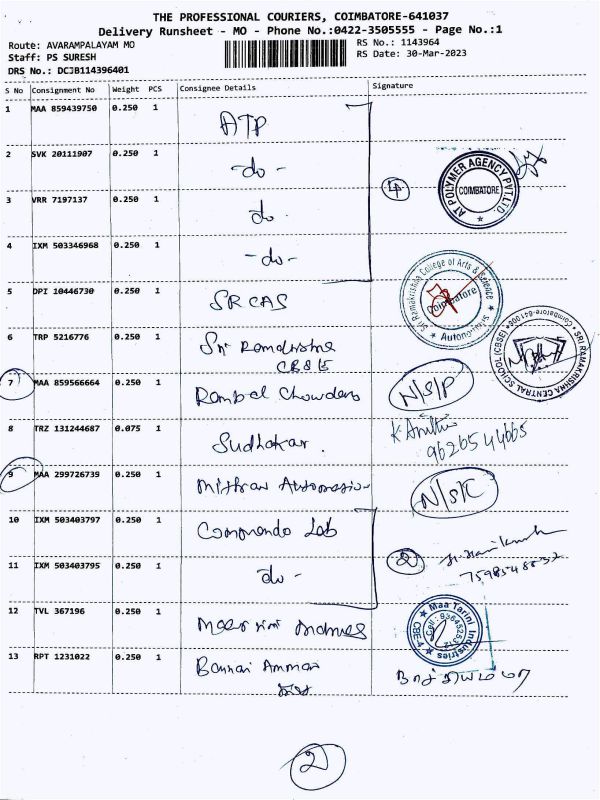 THE PROFESSIONAL COURIERS, COIMBATORE-641037
Delivery Runsheet - MO - Phone No.:0422-3505555 - Page No.:1
Route: AVARAMPALAYAM MO
RS No.: 1143964
Staff: PS SURESH
RS Date: 30-Mar-2023
DRS No.: DCJB114396401
S No Consignment No Weight PCS Consignee Details Signature
1 MAA 859439750 0.250 1 ATP
2 SVK 20111907 0.250 1 -do-
AT POLYMER AGENCY PVT.LTD.
COIMBATORE
3 VRR 7197137 0.250 1 do.
4
4 IXM 503346968 0.250 1 -do-
Sri Ramakrishna College of Arts & Science
Coimbatore
Autonomous
5 DPI 10446730 0.250 1 SRCAS
6 TRP 5216776 0.250 1 Sri Ramakrishna
CBSE
SRI RAMAKRISHNA CENTRAL SCHOOL (CBSE)
7 MAA 859566664 0.250 1 N/S/P
8 TRZ 131244687 0.075 1 Sudhakar.
9626544665
9 MAA 299726739 0.250 1 Mithran N/S/C
10 IXM 503403797 0.250 1 Commando Lab
2
11 IXM 503403795 0.250 1 do-
12 TVL 367196 0.250 1
Maa Tarini Industries
CBE-4
13 RPT 1231022 0.250 1 Bannari Amman
2